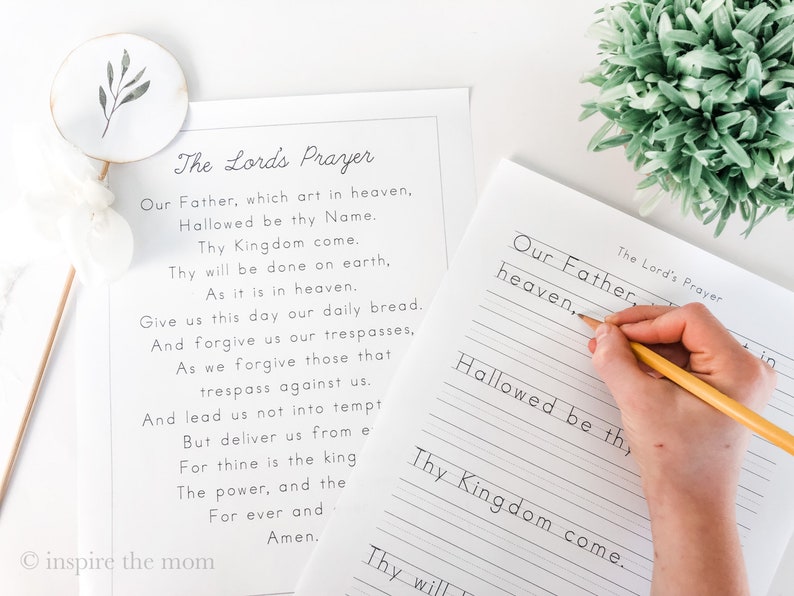 The Lord's Prayer
Our Father, which art in heaven,
Hallowed be thy Name.
Thy Kingdom come.
Thy will be done on earth,
As it is in heaven.
Give us this day our daily bread.
And forgive us our trespasses,
As we forgive those that
trespass against us.
And lead us not into
But deliver us from
For thine is the
The power, and the
For ever and
Amen.
The Lord's Prayer
Our Father, in
heaven,
Hallowed be
Thy Kingdom come.
Thy
© inspire the mom